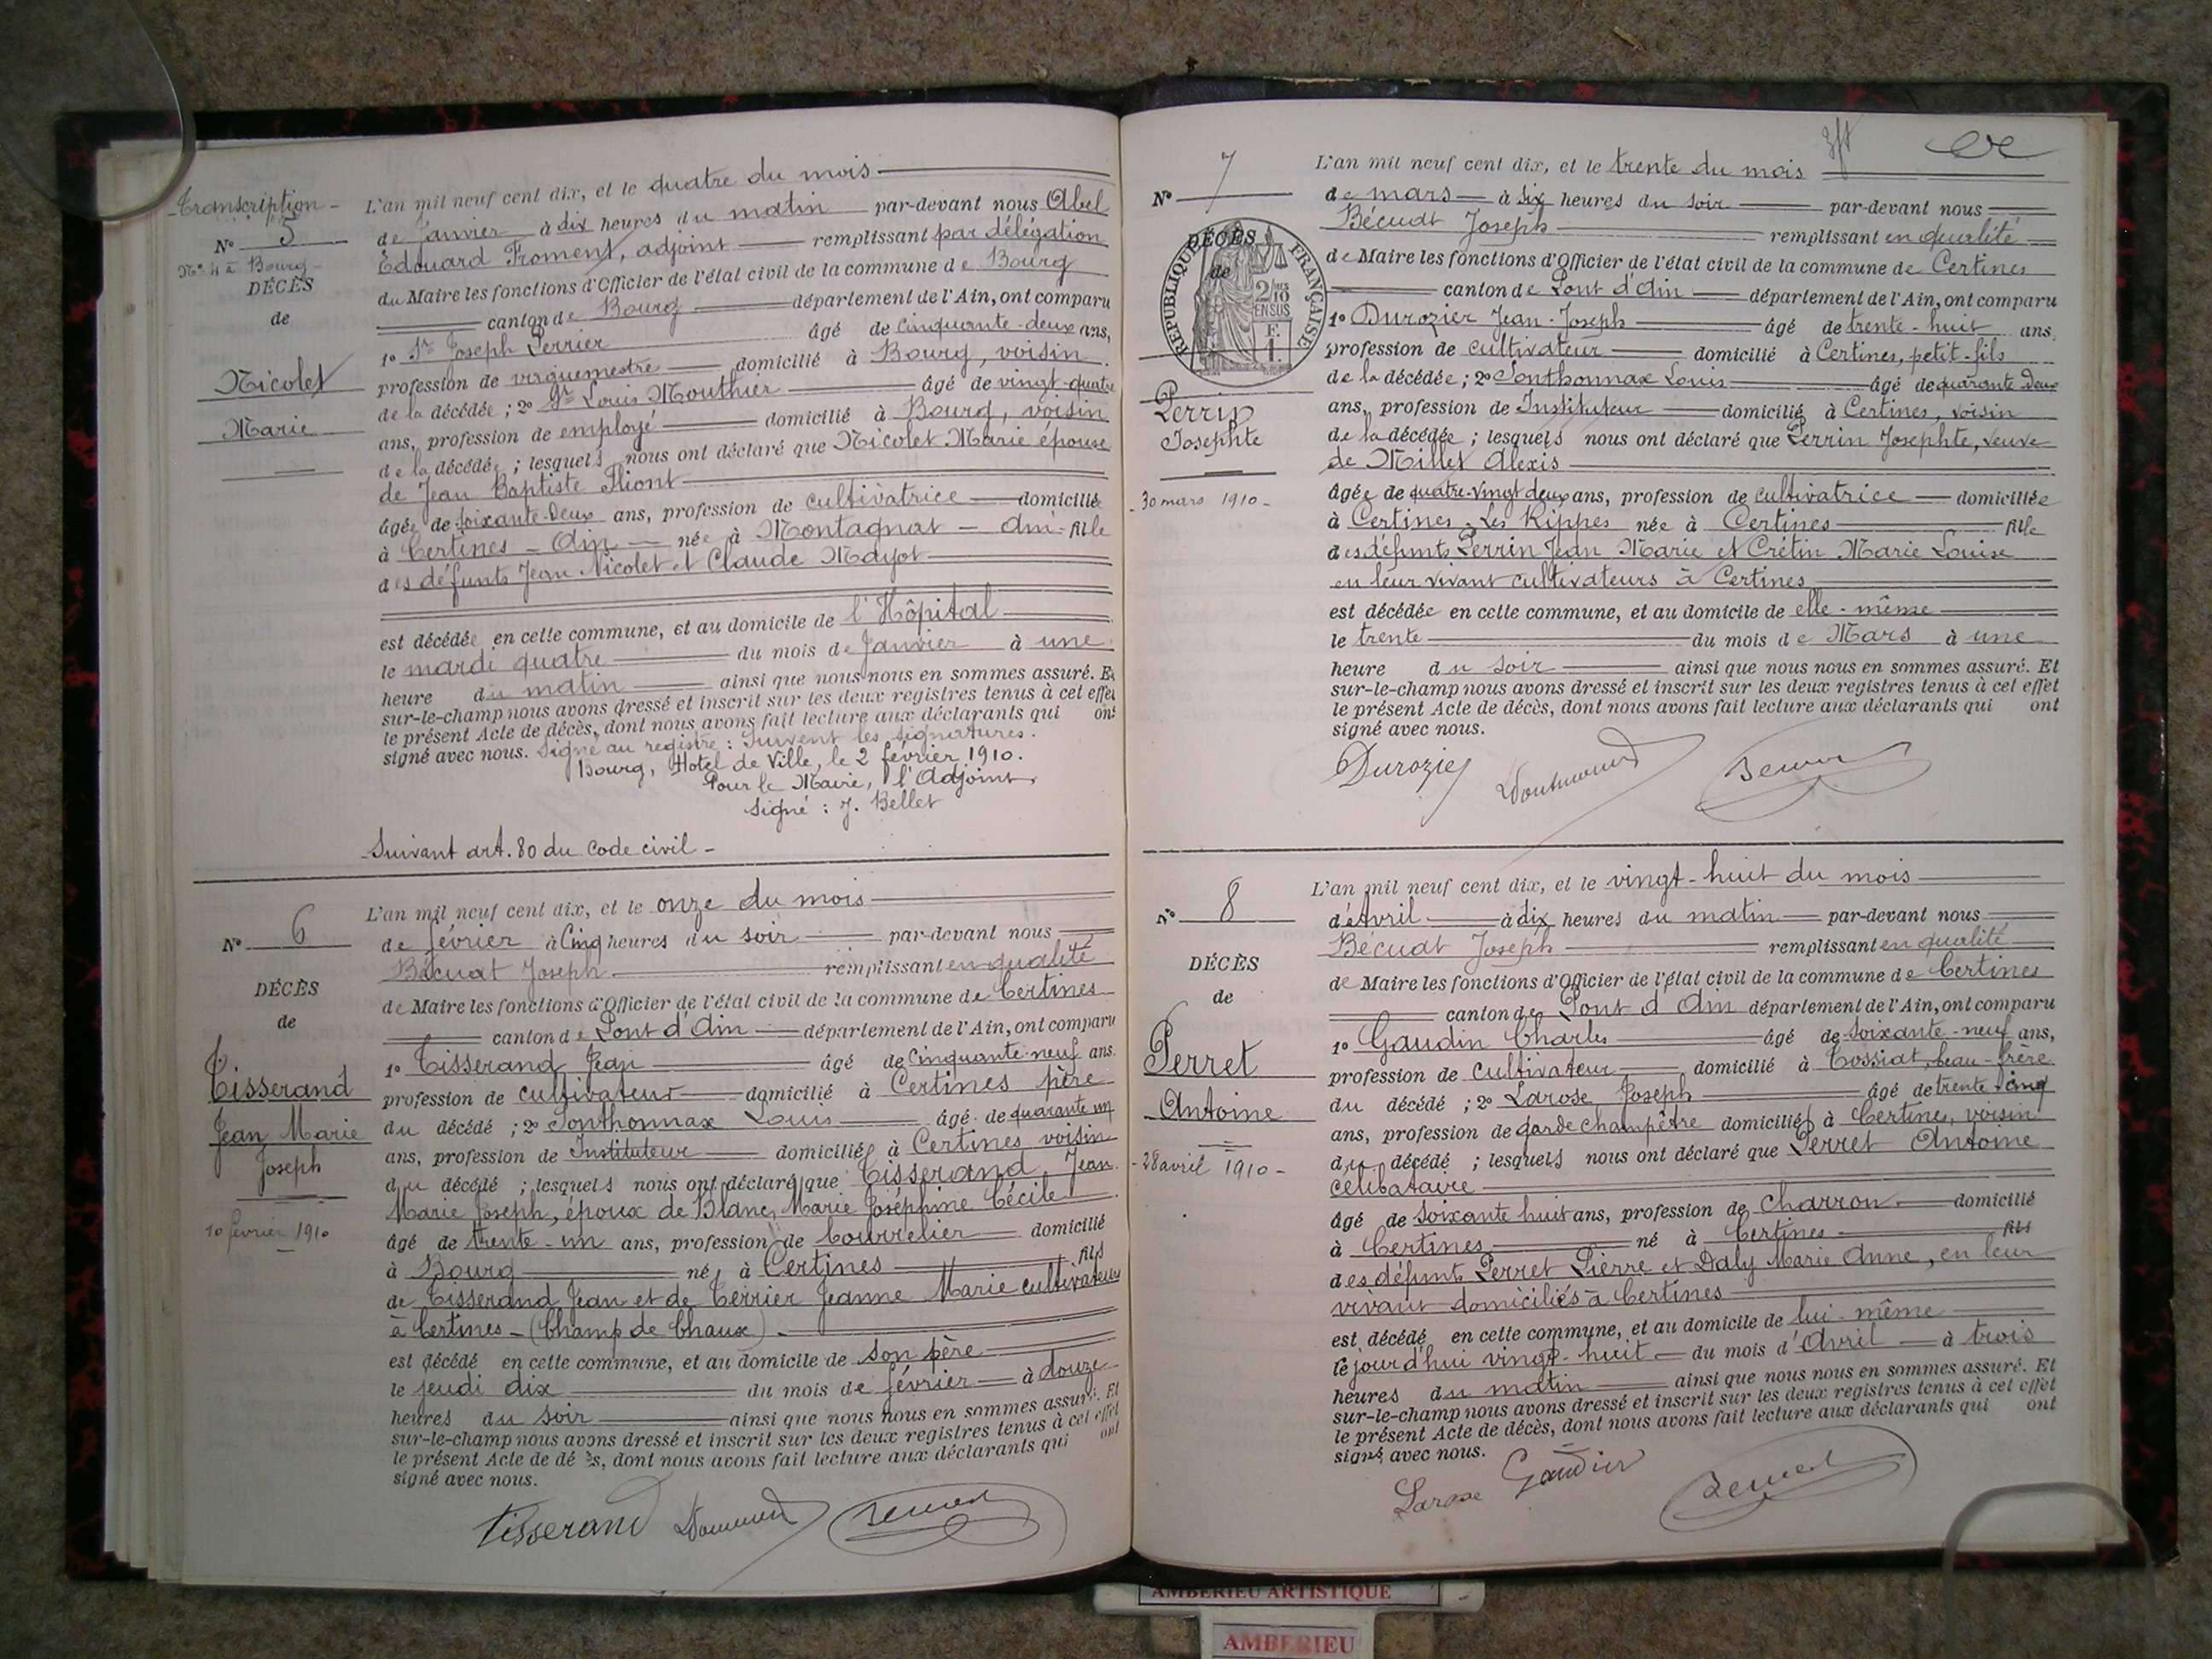 Transcription -
N° 5
N° 4 à Bourg -
DÉCÈS
de
Nicolet
Marie
L'an mil neuf cent dix, et le quatre du mois
de Janvier à dix heures du matin par-devant nous Abel
Édouard Froment, adjoint remplissant par délégation
du Maire les fonctions d'Officier de l'état civil de la commune de Bourg
canton de Bourg département de l'Ain, ont comparu
1° Sr Joseph Perrier âgé de cinquante-deux ans,
profession de vaguemestre domicilié à Bourg, voisin
de la décédée ; 2° Sr Louis Mouthier âgé de vingt-quatre
ans, profession de employé domicilié à Bourg, voisin
de la décédée ; lesquels nous ont déclaré que Nicolet Marie épouse
de Jean Baptiste
âgée de soixante-deux ans, profession de cultivatrice domiciliée
à Certines - Ain - née à Montagnat - Ain - fille
des défunts Jean Nicolet et Claude Mayot
est décédée en cette commune, et au domicile de l'Hôpital
le mardi quatre du mois de Janvier à une
heure du matin ainsi que nous nous en sommes assuré. Et
sur-le-champ nous avons dressé et inscrit sur les deux registres tenus à cet effet
le présent Acte de décès, dont nous avons fait lecture aux déclarants qui ont
signé avec nous. Signé au registre : Suivent les signatures.
Bourg, Hotel de Ville, le 2 février 1910.
Pour le Maire, l'Adjoint,
Signé : J. Bellet
Suivant art. 80 du Code civil -
N° 6
DÉCÈS
de
Tisserand
Jean Marie
Joseph
10 février 1910
L'an mil neuf cent dix, et le onze du mois
de février à Cinq heures du soir par-devant nous
Bécuat Joseph remplissant en qualité
de Maire les fonctions d'Officier de l'état civil de la commune de Certines
canton de Pont d'Ain département de l'Ain, ont comparu
1° Tisserand Jean âgé de cinquante-neuf ans.
profession de cultivateur domicilié à Certines père
du décédé ; 2° Sonthonnax Louis âgé de quarante un
ans, profession de Instituteur domiciliés à Certines voisin
du décédé ; lesquels nous ont déclaré que Tisserand Jean
Marie Joseph, époux de Blanc Marie Joséphine Cécile
âgé de trente-un ans, profession de bourrelier domicilié
à Bourg né à Certines fils
de Tisserand Jean et de Terrier Jeanne Marie cultivateurs
à Certines - (Champ de Chaux) -
est décédé en cette commune, et au domicile de son père
le jeudi dix du mois de février à douze
heures du soir ainsi que nous nous en sommes assuré. Et
sur-le-champ nous avons dressé et inscrit sur les deux registres tenus à cet effet
le présent Acte de décès, dont nous avons fait lecture aux déclarants qui ont
signé avec nous.
Tisserand
N° 7
RÉPUBLIQUE FRANÇAISE
2/10 EN SUS
F. 1.
DÉCÈS
de
Perrin
Josephte
30 mars 1910 -
L'an mil neuf cent dix, et le trente du mois
de mars à six heures du soir par-devant nous
Bécuat Joseph remplissant en qualité
de Maire les fonctions d'Officier de l'état civil de la commune de Certines
canton de Pont d'Ain département de l'Ain, ont comparu
1° Durozier Jean-Joseph âgé de trente-huit ans,
profession de cultivateur domicilié à Certines, petit-fils
de la décédée ; 2° Sonthonnax Louis âgé de quarante deux
ans, profession de Instituteur domicilié à Certines, voisin
de la décédée ; lesquels nous ont déclaré que Perrin Josephte, veuve
de Millet Alexis
âgée de quatre-vingt deux ans, profession de cultivatrice domiciliée
à Certines, Les Rippes née à Certines fille
des défunts Perrin Jean Marie et Crétin Marie Louise
en leur vivant cultivateurs à Certines
est décédée en cette commune, et au domicile de elle-même
le trente du mois de Mars à une
heure du soir ainsi que nous nous en sommes assuré. Et
sur-le-champ nous avons dressé et inscrit sur les deux registres tenus à cet effet
le présent Acte de décès, dont nous avons fait lecture aux déclarants qui ont
signé avec nous.
Durozier
N° 8
DÉCÈS
de
Perret
Antoine
- 28 avril 1910 -
L'an mil neuf cent dix, et le vingt-huit du mois
d'Avril à dix heures du matin par-devant nous
Bécuat Joseph remplissant en qualité
de Maire les fonctions d'Officier de l'état civil de la commune de Certines
canton de Pont d'Ain département de l'Ain, ont comparu
1° Gaudin Charles âgé de soixante-neuf ans,
profession de cultivateur domicilié à Tossiat, beau-frère
du décédé ; 2° Larose Joseph âgé de trente cinq
ans, profession de garde champêtre domiciliés à Certines, voisin
du décédé ; lesquels nous ont déclaré que Perret Antoine
célibataire
âgé de soixante huit ans, profession de charron domicilié
à Certines né à Certines fils
des défunts Perret Pierre et Daly Marie Anne, en leur
vivant domiciliés à Certines
est décédé en cette commune, et au domicile de lui-même
le jour d'hui vingt-huit du mois d'Avril à trois
heures du matin ainsi que nous nous en sommes assuré. Et
sur-le-champ nous avons dressé et inscrit sur les deux registres tenus à cet effet
le présent Acte de décès, dont nous avons fait lecture aux déclarants qui ont
signé avec nous.
Larose Gaudin
AMBERIEU ARTISTIQUE
AMBERIEU